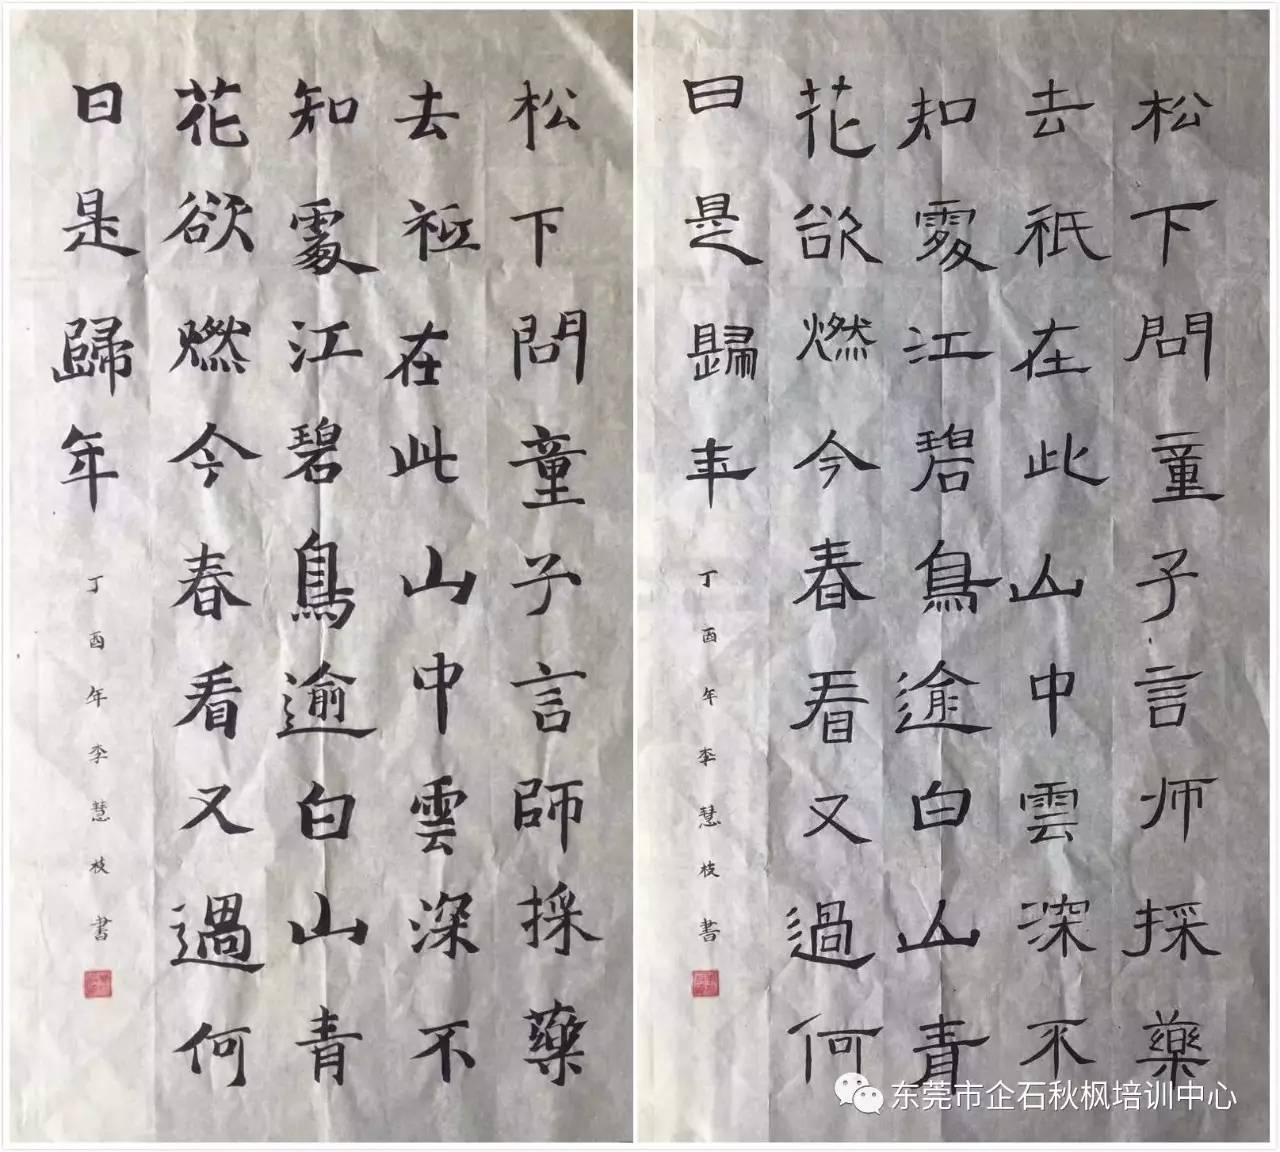 松下問童子言師採藥
去祗在此山中雲深不
知處江碧鳥逾白山青
花欲燃今春看又過何
日是歸年
丁酉年李慧枝書
松下問童子言师採藥
去祇在此山中雲深不
知處江碧鳥逾白山青
花欲燃今春看又過何
日是歸年
丁酉年李慧枝書
东莞市企石秋枫培训中心